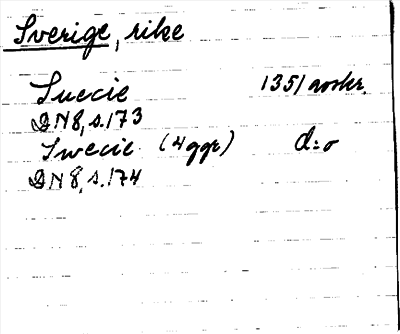 Sverige, rike
Suecie 1351 avskr.
DN 8, s. 173
Swecie (4 ggr) d:o
DN 8, s. 174